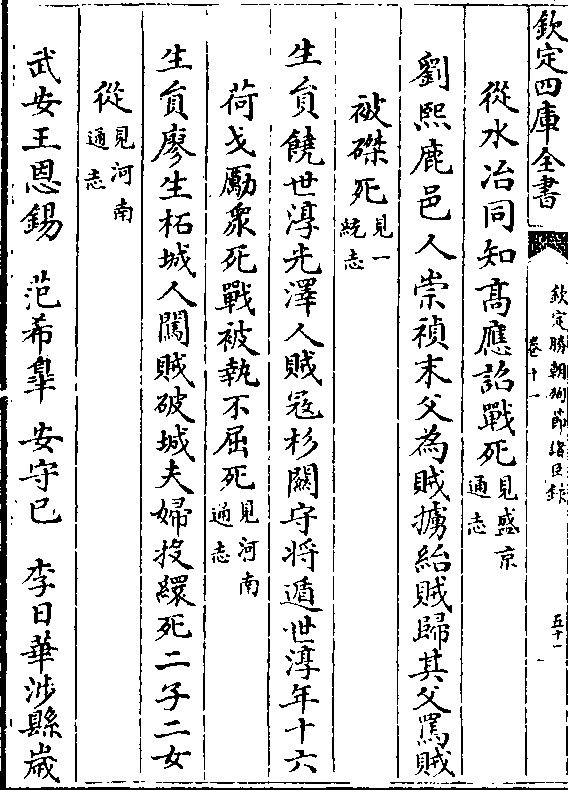 欽定四庫全書
欽定勝朝殉節諸臣錄
卷十一
五十一
從水冶同知高應詔戰死見盛京
通志
劉熙鹿邑人崇禎末父為賊擄紿賊歸其父罵賊
被磔死見一
統志
生員饒世淳光澤人賊寇杉關守將遁世淳年十六
荷戈勵衆死戰被執不屈死見河南
通志
生員廖生柘城人闖賊破城夫婦投繯死二子二女
從見河南
通志
武安王恩錫 范希臯 安守已 李日華涉縣歲